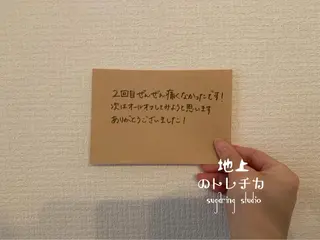 2回目ぜんぜん痛くなかったです!
次はオールオフしてみようと思います
ありがとうございました!
地上
のトレチカ
sugaring studio